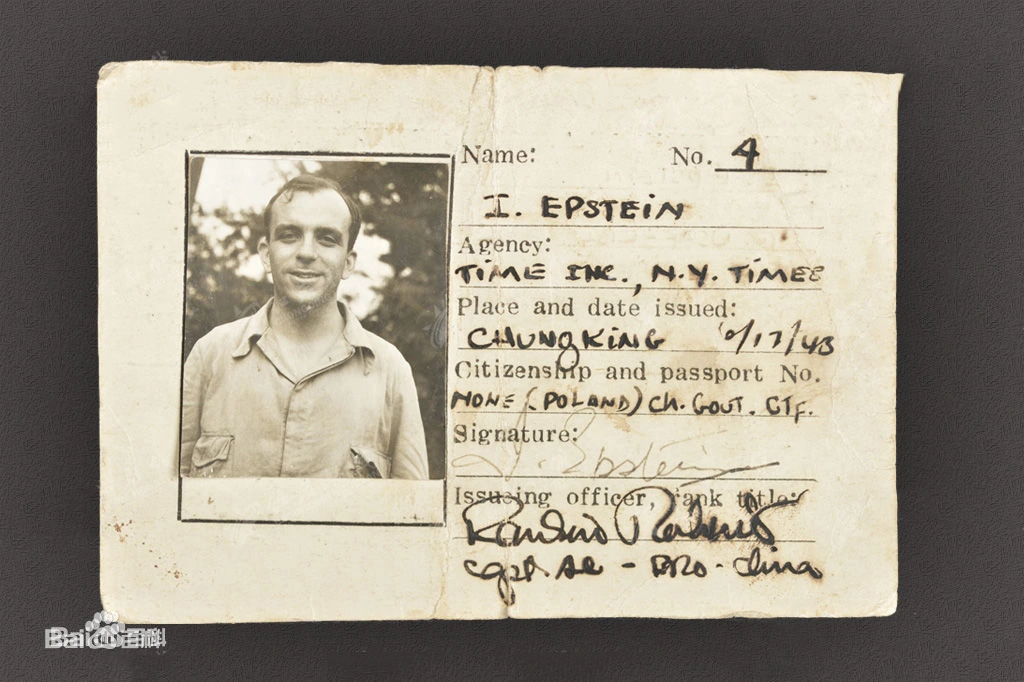 Name: No. 4
I. EPSTEIN
Agency:
TIME INC., N.Y. TIMES
Place and date issued:
CHUNGKING /17/43
Citizenship and passport No.
NONE (POLAND) CH. GOVT. CTF.
Signature:
I. Epstein
Issuing officer, rank title:
Capt. - PRO - China
Baidu百科